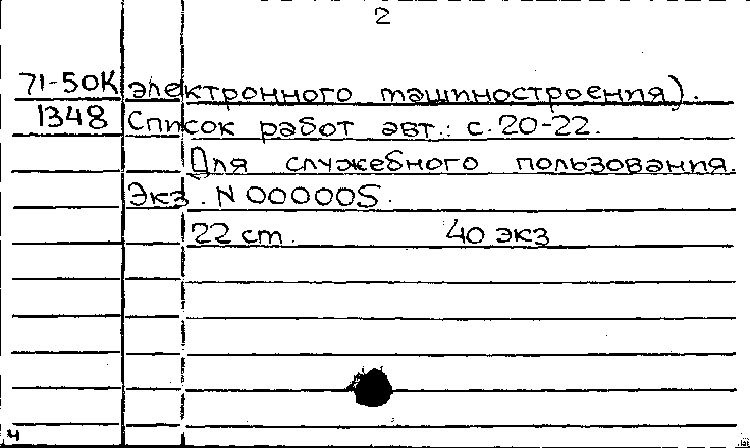 2
71-50К электронного машиностроения).
1348 Список работ авт.: с. 20-22.
Для служебного пользования.
Экз. N 000005.
22 см. 40 экз
ч